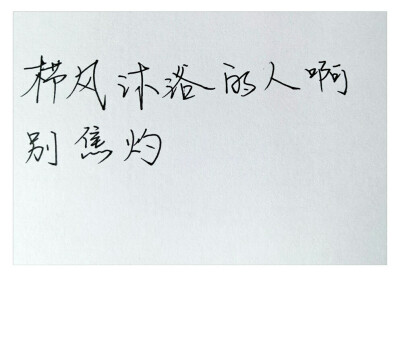 栉风沐浴的人啊
别焦灼